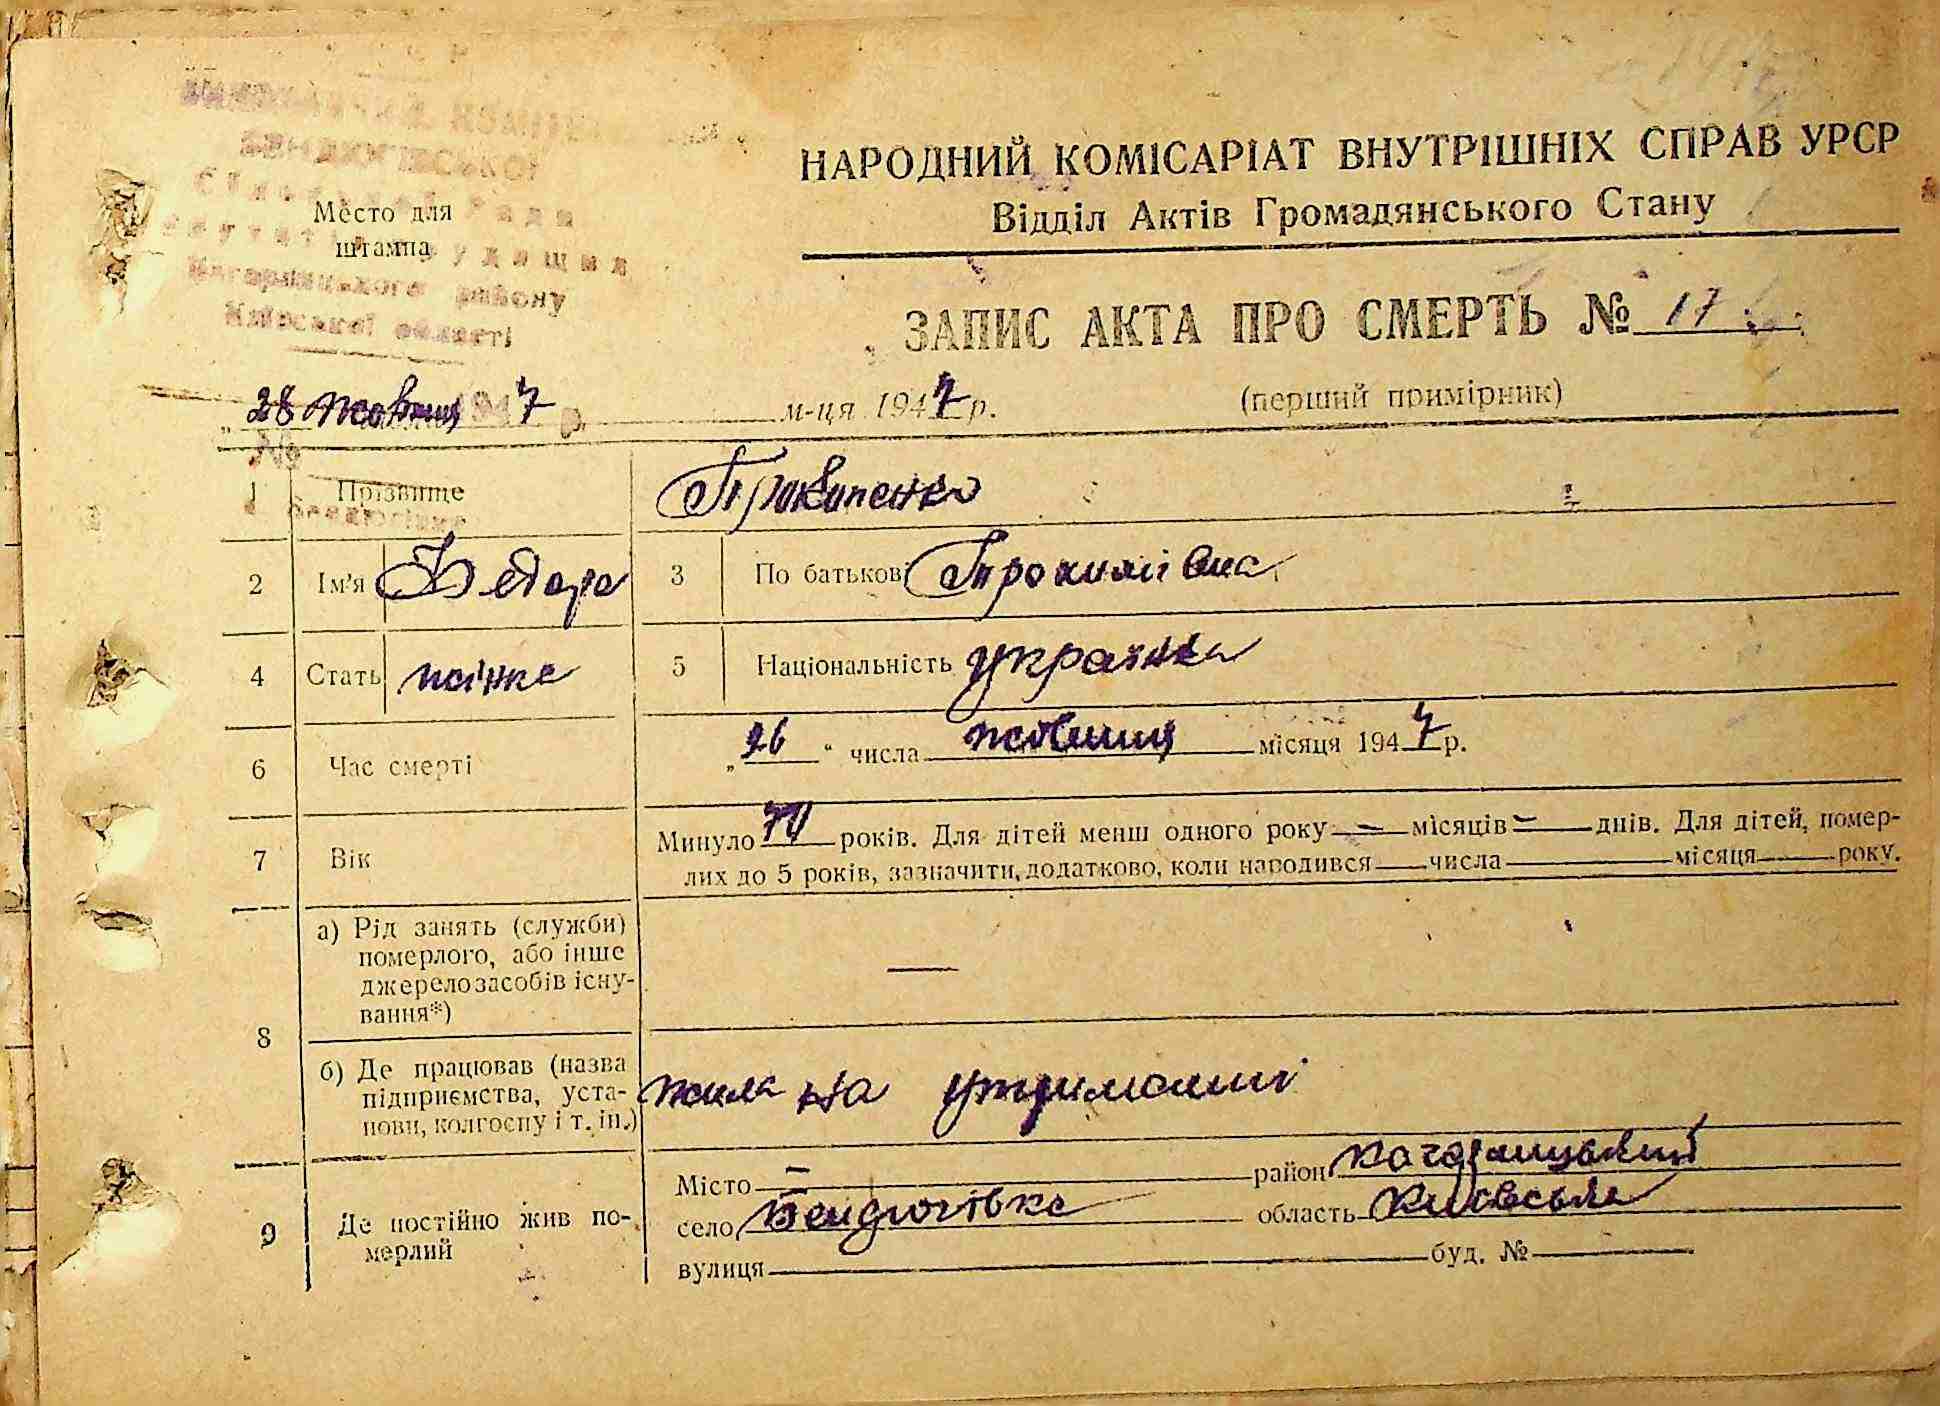 Місто для
штампа
Кагарлицького району
Київської області
НАРОДНИЙ КОМІСАРІАТ ВНУТРІШНІХ СПРАВ УРСР
Відділ Актів Громадянського Стану
ЗАПИС АКТА ПРО СМЕРТЬ № 17
„28 жовтня 1947 р. м-ця 1947 р. (перший примірник)
1 Прізвище Прокопенко
2 Ім'я Федора 3 По батькові Трохимівна
4 Стать жінка 5 Національність українка
6 Час смерті „26“ числа жовтня місяця 1947 р.
7 Вік Минуло 70 років. Для дітей менш одного року — місяців — днів. Для дітей, помер-
лих до 5 років, зазначити, додатково, коли народився числа місяця року.
8 а) Рід занять (служби)
померлого, або інше
джерело засобів існу-
вання*) —
б) Де працював (назва
підприємства, уста-
нови, колгоспу і т. ін.) жила на утриманні
9 Де постійно жив по-
мерлий
Місто — район Кагарлицький
село Бендюгівка область Київська
вулиця буд. №